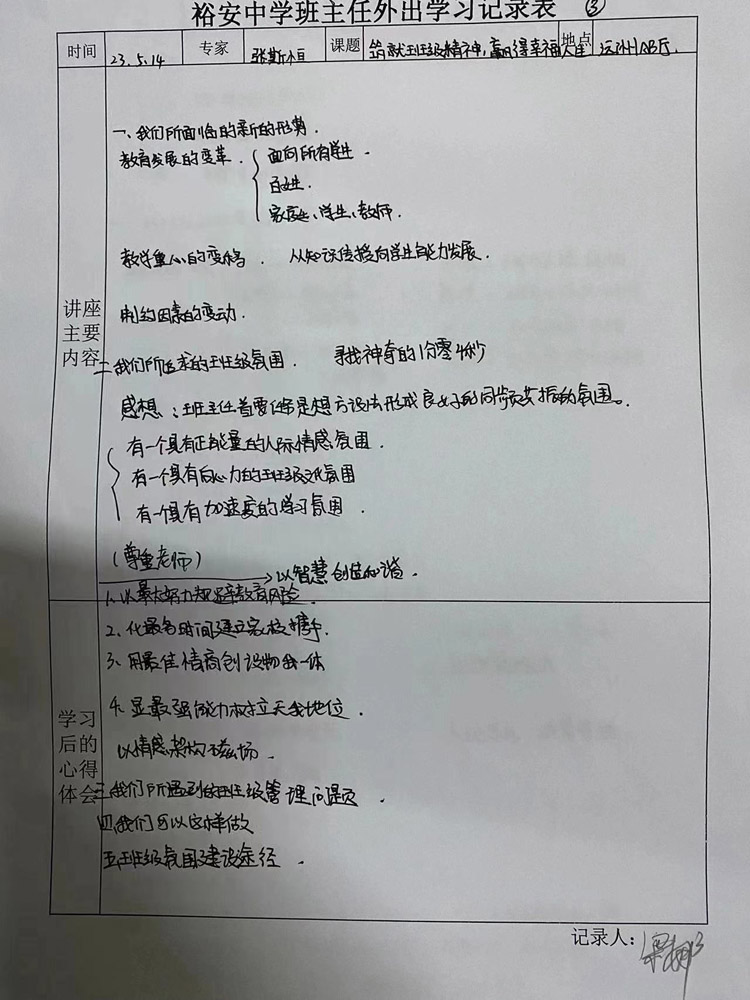 裕安中学班主任外出学习记录表 ③
时间 23.5.14 专家 张斯恒 课题 铸就班级精神,赢得幸福人生 地点 远洲AB厅.
讲座主要内容
一、我们所面临的新的形势.
教育发展的变革. 面向所有学生.
百姓.
家庭、学生、教师.
教学重心的变移. 从知识传授向学生能力发展.
制约因素的变动.
二我们所追求的班级氛围. 寻找神奇的1分零4秒
感想:班主任首要任务是想方设法形成良好的同频共振的氛围。
有一个具有正能量的人际情感氛围.
有一个具有向心力的班级文化氛围
有一个具有加速度的学习氛围.
(尊重老师)
→以智慧创造和谐.
1.以最大努力规避教育风险.
学习后的心得体会
2、化最多时间建立家校携手.
3、用最佳情商创设物我一体
4.显最强能力树立天我地位.
以情感架构磁场.
三我们所遇到的班级管理问题.
四我们可以这样做
五班级氛围建设途径.
记录人: